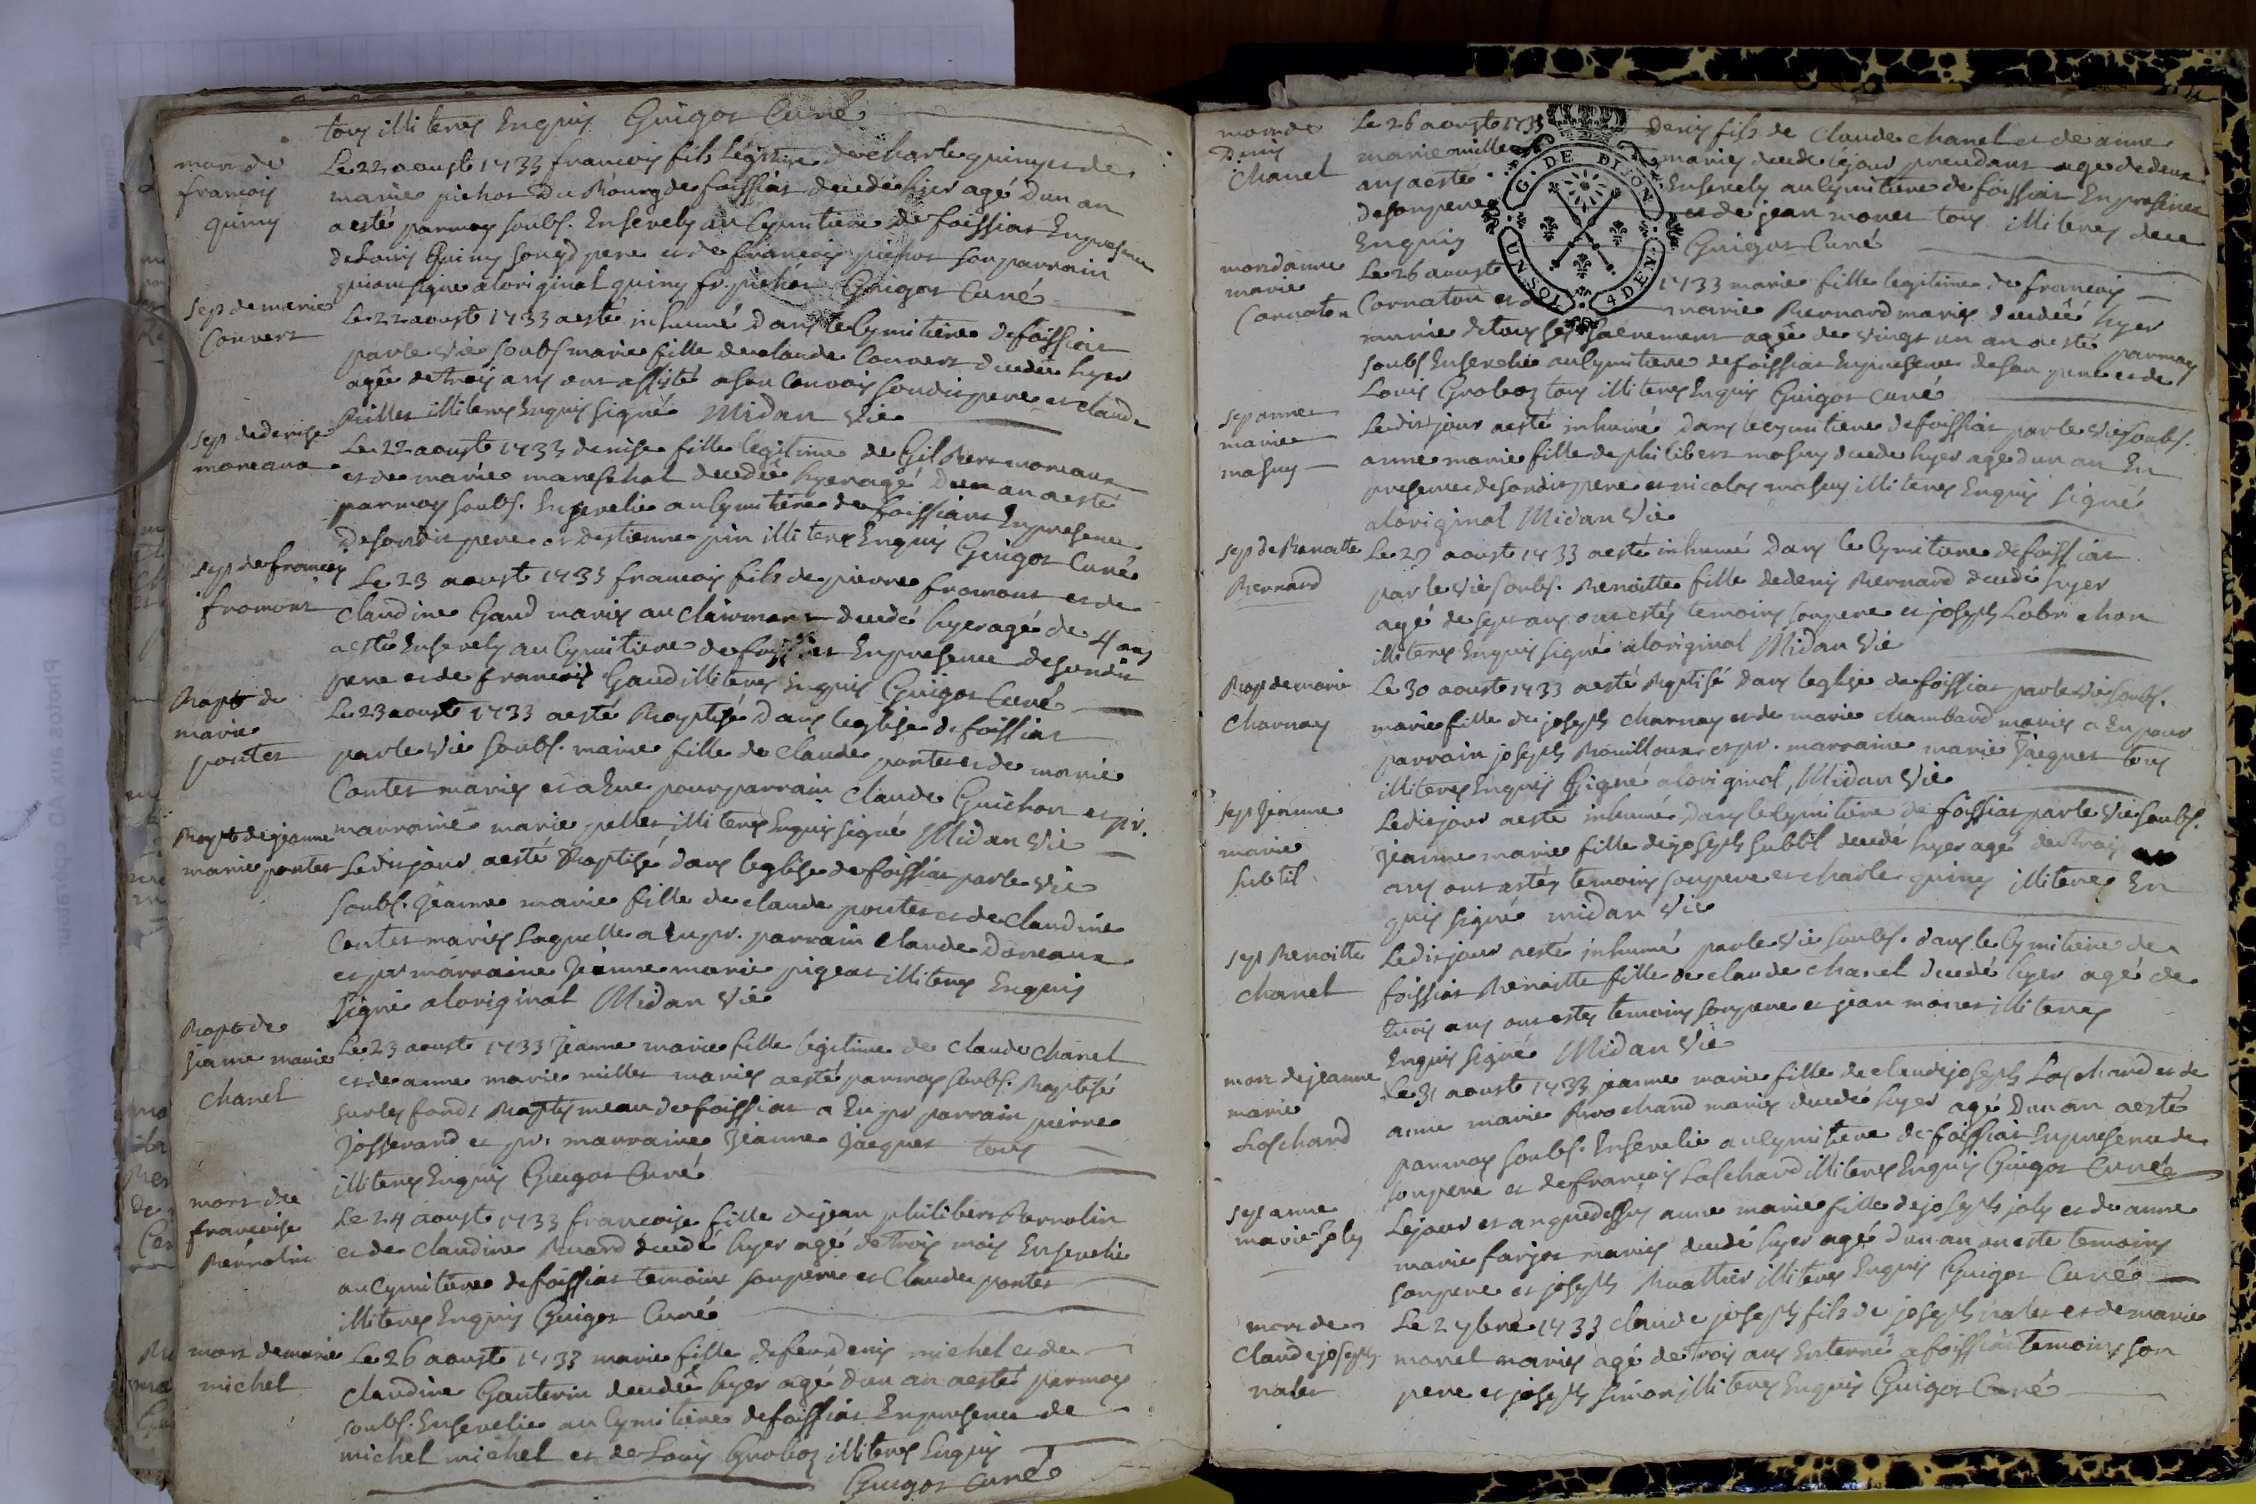 tous illiteres Enquis Guigot Curé
mort de
françois
quiny
Le 22 aoust 1733 francois fils legitime de charle quiny et de
marie pichot Du Bourg de foissiat decedé hyer agé Dun an
aesté parmoy soubs. Ensevely au Cymitiere de foissiat Enpresence
de Louis Quiny son gd pere et de francois pichot son parrain
qui ont signe aloriginal quiny fr. pichot Guigot Curé
sep de marie
Convert
Le 22 aoust 1733 aesté inhumé Dans le Cymitiere de foissiat
par le vic soubs marie fille de claude Convert decedee hyer
agée de trois ans ont assisté a son Convois sondit pere et claude
Millet illiteres Enquis signé Midan Vic
sep de denise
moreaux
Le 22 aoust 1733 denise fille legitime de Gilbert moreaux
et de marie mareschal decedée hyer agé Dun an aesté
parmoy soubs. Ensevelie au Cymitiere de foissiat Enpresence
De sondit pere et destienne pin illiteres Enquis Guigot Curé
sep de francois
fromont
Le 23 aoust 1733 francois fils de pierre fromont et de
claudine Gaud mariés au Clairmont decedé hyer agé de 4 ans
aesté Ensevely au Cymitiere de foissiat Enpresence de sondit
pere et de francois Gaud illiteres Enquis Guigot Curé
Bapt de
marie
pontet
Le 23 aoust 1733 aesté Baptisé Dans leglise de foissiat
par le vic soubs. marie fille de claude pontet et de marie
Contet mariés et a Eue pour parrain Claude Guichon et pr.
marraine marie pellet illiteres Enquis signé Midan Vic
Bapt de jeanne
marie pontet
Ledit jour aesté Baptisé dans leglise de foissiat par le vic
soubs. Jeanne marie fille de claude pontet et de Claudine
Contet mariés laquelle a Eu pr. parrain Claude Doneaux
et pr marraine Jeanne marie pigeat illiteres Enquis
signé aloriginal Midan Vic
Bapt de
Jeanne marie
Chanel
Le 23 aoust 1733 Jeanne marie fille legitime de Claude Chanel
et de anne marie millet mariés aesté parmoy soubs. Baptisé
sur les fonds Baptismeau de foissiat a Eu pr parrain pierre
Josserand et pr. marraine Jeanne Jacquet tous
illiteres Enquis Guigot Curé
mort de
francoise
Bernolin
Le 24 aoust 1733 francoise fille de jean philibert Bernolin
et de Claudine Buard decedé hyer agé de Trois mois Ensevelie
au Cymitiere de foissiat temoins son pere et Claude pontet
illiteres Enquis Guigot Curé
mort de marie
michel
Le 26 aoust 1733 marie fille de feu denis michel et de
claudine Gauterin decedée hyer agé dun an aesté parmoy
soubs. Ensevelie au Cymitiere de foissiat Enpresence de
michel michel et de Louis Groboz illiteres Enquis
Guigot Curé
mort de
Denis
Chanel
Le 26 aoust 1733 denis fils de Claude chanel et de anne
marie millet mariés decedé ce jour prendant age de deux
ans aesté Ensevely au Cymitiere de foissiat Enpresence
de son pere et de jean monet tous illiteres dece
Enquis Guigot Curé
G. DE DIJON
UN SOL 4 DEN.
mort danne
marie
Cornaton
Le 26 aoust 1733 marie fille legitime de francois
Cornaton et de marie Bernard mariés decedéé hyer
munie de tous ses sacrement agée de vingt un an aesté parmoy
soubs Ensevelie au Cymitiere de foissiat Enpresence de son pere et de
Louis Groboz tous illiteres Enquis Guigot Curé
sep anne
marie
masuy
Ledit jour aesté inhumé Dans le cymitiere de foissiat par le vic soubs.
anne marie fille de philibert masuy decede hyer age dun an En
presence de sondit pere et nicolas masuy illiteres Enquis signé
aloriginal Midan Vic
sep de Benoitte
Bernard
Le 27 aoust 1733 aesté inhumé Dans le Cymitiere de foissiat
par le vic soubs. Benoitte fille de denis Bernard decedé hyer
agé de sept ans ont estés temoins son pere et joseph Lobrichon
illiteres Enquis signé aloriginal Midan Vic
Bapt de marie
Charnay
Le 30 aoust 1733 aesté Baptisé Dans leglise de foissiat par le vic soubs.
marie fille de joseph charnay et de marie chambard mariés a Eu pour
parrain joseph Bouilloux et pr. marraine marie Jacquet tous
illiteres Enquis signé aloriginal, Midan Vic
sep Jeanne
marie
subtil
Ledit jour aesté inhumé Dans le Cymitiere de foissiat par le vic soubs.
Jeanne marie fille de joseph subtil decedé hyer agé de trois
ans ont estés temoins son pere et charle quiny illiteres En
quis signé midan Vic
sep Benoitte
Chanel
Ledit jour aesté inhumé par le vic soubs. dans le Cymitiere de
foissiat Benoitte fille de claude chanel decedé hyer agé de
trois ans ont estés temoins son pere et jean monet illiteres
Enquis signé Midan Vic
mort de jeanne
marie
Loschard
Le 31 aoust 1733 jeanne marie fille de claude joseph Loschard et de
anne marie Brochand mariés decedé hyer agé Dun an aesté
parmoy soubs. Ensevelie au Cymitiere de foissiat Enpresence de
son pere et de francois Loschard illiteres Enquis Guigot Curé
sep anne
marie Joly
Le jour et an que dessus anne marie fille de joseph joly et de anne
marie farjot mariés decedé hyer agé dun an ont este temoins
son pere et joseph Buattier illiteres Enquis Guigot Curé
mort de
Claude joseph
nalet
Le 2 7bre 1733 claude joseph fils de joseph nalet et de marie
morel mariés agé de Trois ans Enterré a foissiat temoins son
pere et joseph simon illiteres Enquis Guigot Curé